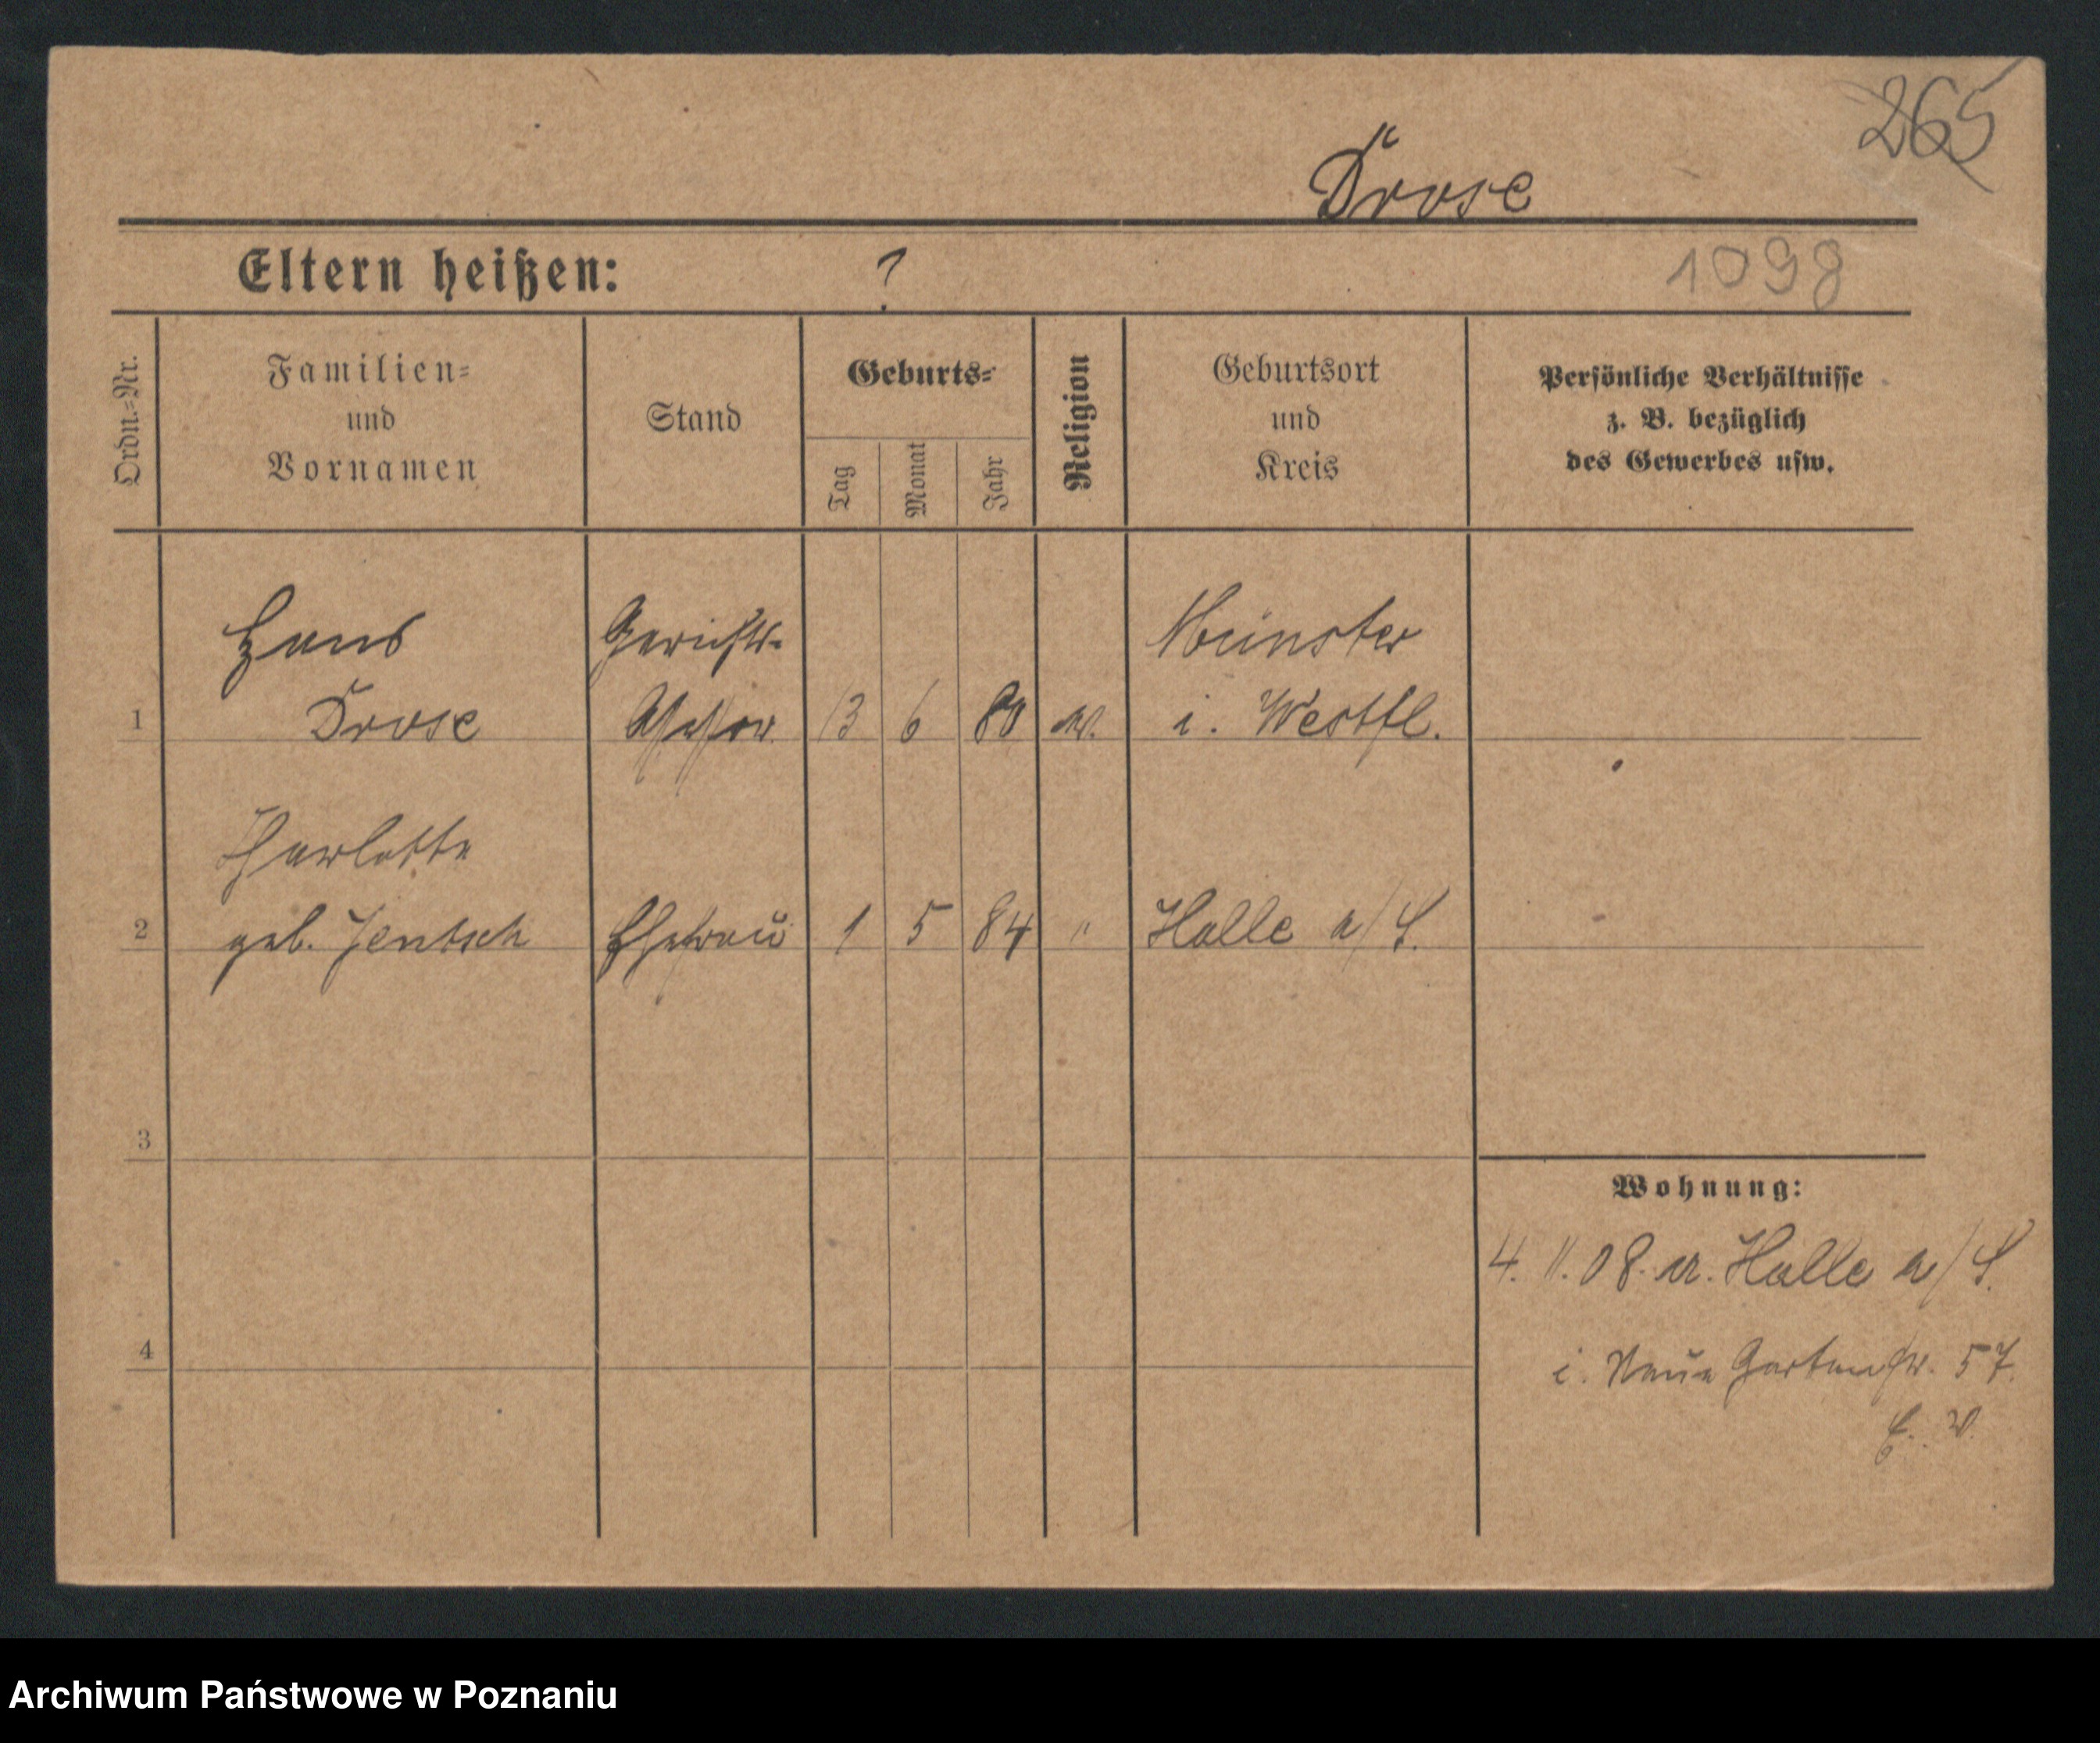 265
Drose
Eltern heißen: ?
1098
Ordn.-Nr.
Familien-
und
Vornamen
Stand
Geburts-
Tag
Monat
Jahr
Religion
Geburtsort
und
Kreis
Persönliche Verhältnisse
z. B. bezüglich
des Gewerbes usw.
Hans Gerichts- Münster
1 Drose Assessor 13 6 80 i. Westfl.
Charlotte
2 geb. Jentsch Ehefrau 1 5 84 " Halle a/S.
3
Wohnung:
4. 11. 08. Halle a/S.
4
i. Neue Gartenstr. 57.
Archiwum Państwowe w Poznaniu